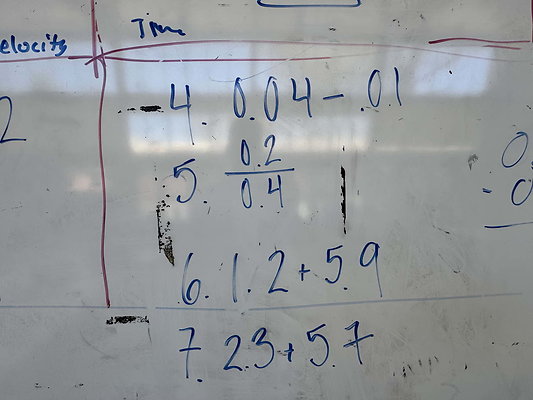 elocity
Time
2
4. 0.04 - .01
5. 0.2
0.4
0.
- 0
6. 1.2 + 5.9
7. 2.3 + 5.7